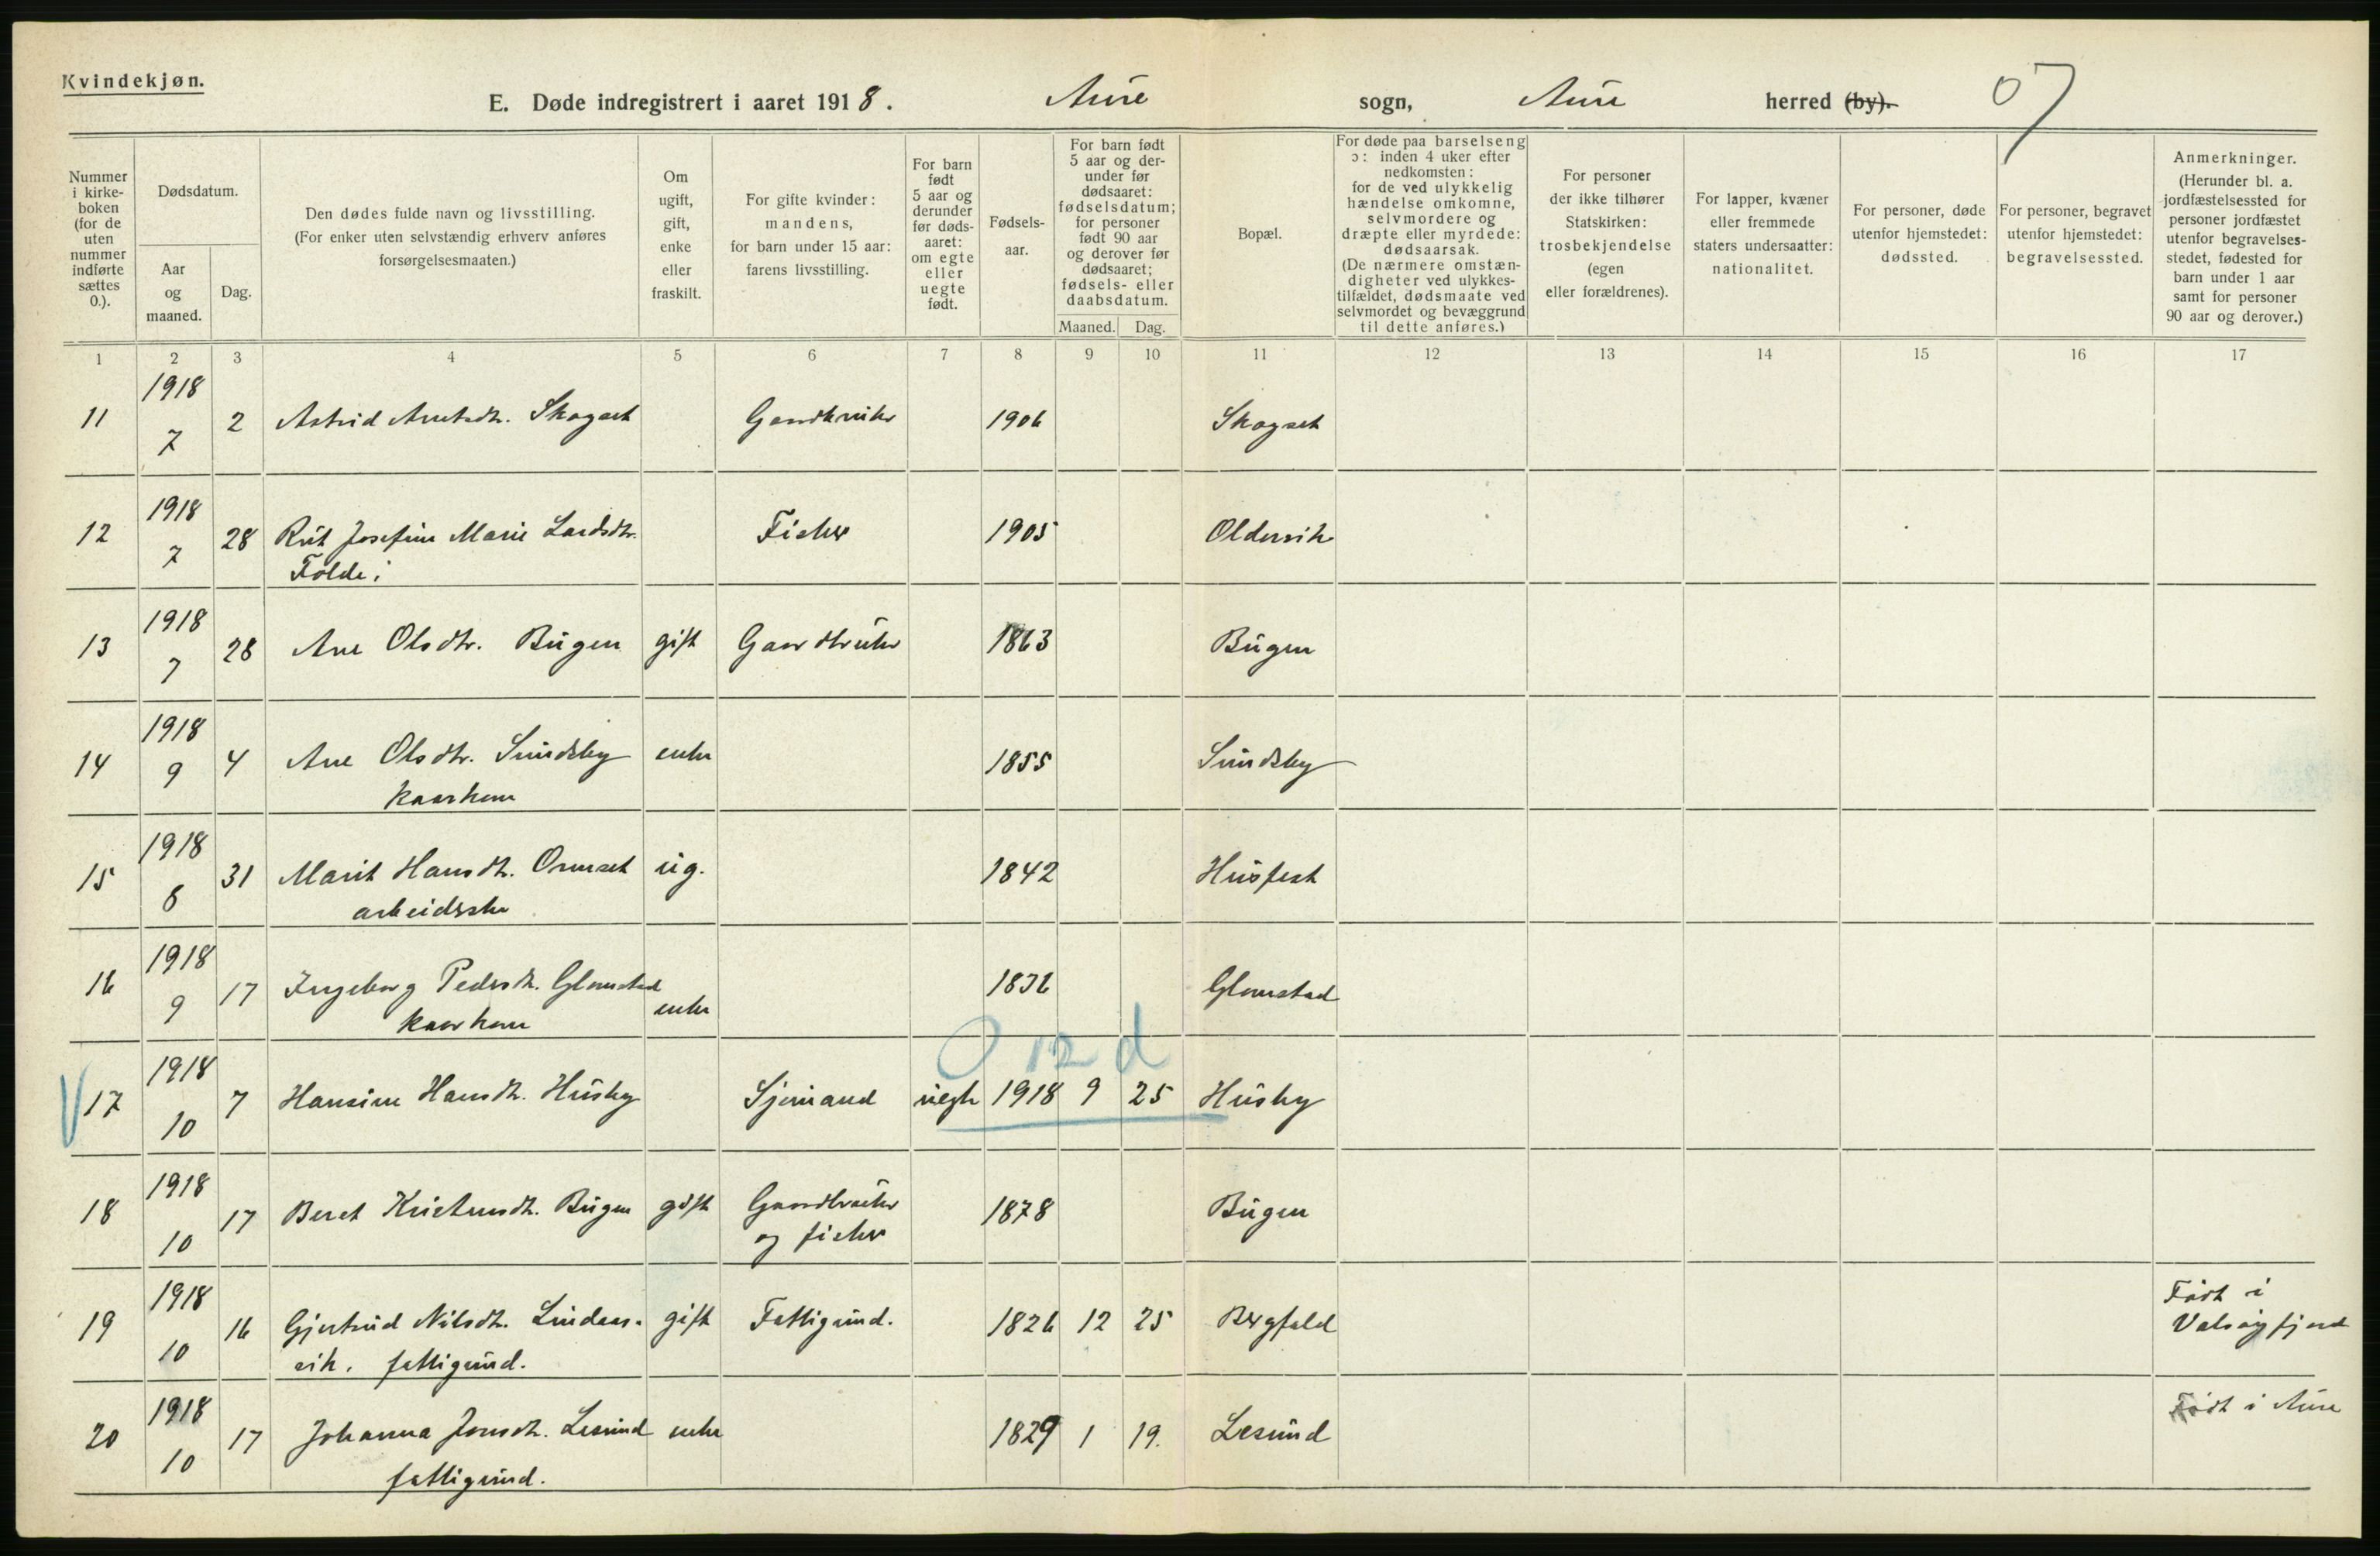 Kvindekjøn.
E. Døde indregistrert i aaret 1918. Aure sogn, Aure herred (by). 07
Nummer i kirkeboken (for de uten nummer indførte sættes 0.).
Dødsdatum.
Aar og maaned.
Dag.
Den dødes fulde navn og livsstilling. (For enker uten selvstændig erhverv anføres forsørgelsesmaaten.)
Om ugift, gift, enke eller fraskilt.
For gifte kvinder: mandens, for barn under 15 aar: farens livsstilling.
For barn født 5 aar og derunder før dødsaaret: om egte eller uegte født.
Fødselsaar.
For barn født 5 aar og derunder før dødsaaret: fødselsdatum; for personer født 90 aar og derover før dødsaaret; fødsels- eller daabsdatum.
Maaned. Dag.
Bopæl.
For døde paa barselseng ɔ: inden 4 uker efter nedkomsten: for de ved ulykkelig hændelse omkomne, selvmordere og dræpte eller myrdede: dødsaarsak. (De nærmere omstændigheter ved ulykkestilfældet, dødsmaate ved selvmordet og bevæggrund til dette anføres.)
For personer der ikke tilhører Statskirken: trosbekjendelse (egen eller forældrenes).
For lapper, kvæner eller fremmede staters undersaatter: nationalitet.
For personer, døde utenfor hjemstedet: dødssted.
For personer, begravet utenfor hjemstedet: begravelsessted.
Anmerkninger. (Herunder bl. a. jordfæstelsessted for personer jordfæstet utenfor begravelsesstedet, fødested for barn under 1 aar samt for personer 90 aar og derover.)
1 2 3 4 5 6 7 8 9 10 11 12 13 14 15 16 17
11 1918 7 2 Astrid Arntsdtr. Skogset Gaardbruker 1906 Skogset
12 1918 7 28 Rut Josefine Marie Larsdtr. Fisker 1905 Oldervik
Foldei
13 1918 7 28 Ane Olsdtr. Bugen gift Gaardbruker 1863 Bugen
14 1918 9 4 Ane Olsdtr. Sundsby enke 1855 Sundsby
kaarkone
15 1918 8 31 Marit Hansdtr. Ormset ug. 1842 Husfest
arbeidsske
16 1918 9 17 Ingeborg Pedersdtr. Glomstad enke 1836 Glomstad
kaarkone
0 12 d
17 1918 10 7 Hansine Hansdtr. Husby Sjømand uegte 1918 9 25 Husby
18 1918 10 17 Beret Kristensdtr. Bugen gift Gaardbruker 1878 Bugen
og fisker
19 1918 10 16 Gjertrud Nilsdtr. Lindaas- gift Fattigund. 1826 12 25 Bergfald Født i Valsøyfjord
vik. fattigund.
20 1918 10 17 Johanna Jonsdtr. Lesund enke 1829 1 19. Lesund Født i Aure
fattigund.